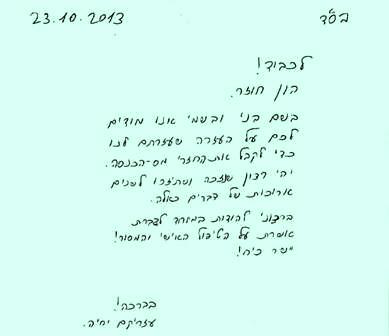 23.10.2013 בס"ד
לכבוד!
הון חוזר.
בשם בני ובשמי אנו מודים
לכם על העזרה שעזרתם לנו
כדי לקבל את החזרי מס-הכנסה.
יהי רצון שנזכה ושתעזרו לשנים
ארוכות של דברים כאלה.
ברצוני להודות במיוחד לגברת
אוסרת על הטיפול האישי והמסור!
יישר כוח!
בברכה!
עזריקם יחיה.